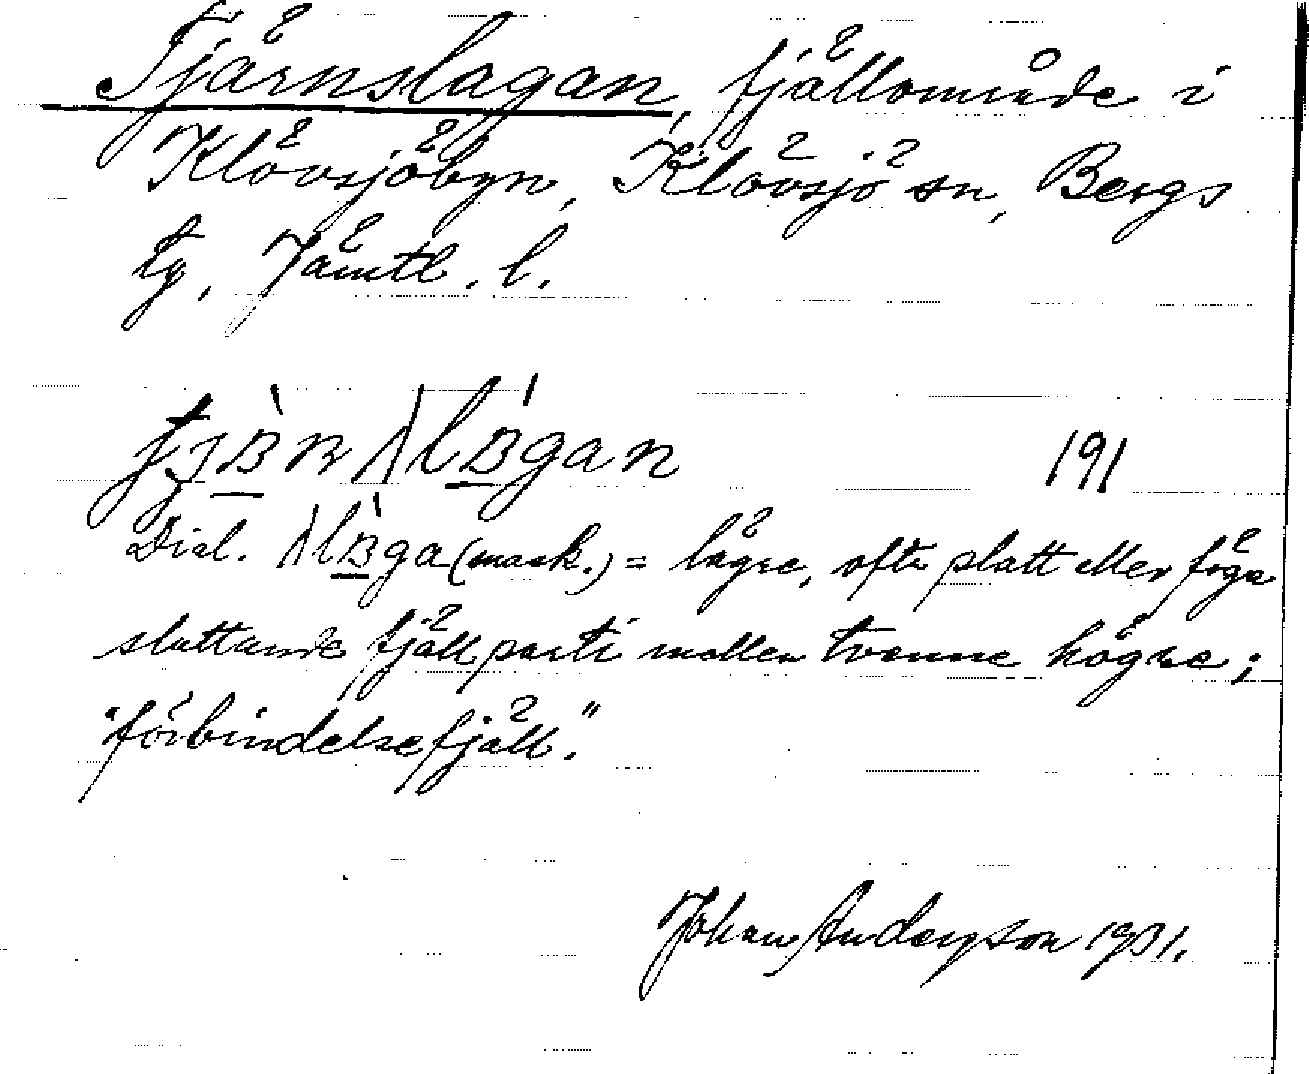 Tjärnslagan, fjällområde i
Klövsjöbyn, Klövsjö sn, Bergs
tg, Jämtl. l.
191
Dial. (mask.) = lägre, ofta platt eller föga
sluttande fjällparti mellan tvenne högre;
"förbindelsefjäll."
Johan Anderson 1931.